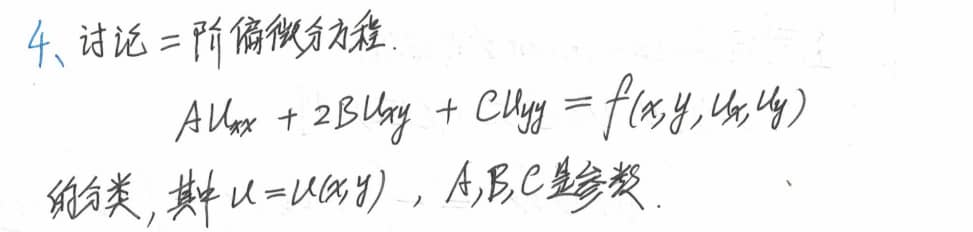 4、讨论二阶偏微分方程.
Auxx + 2Buxy + Cuyy = f(x,y,ux,uy)
的分类,其中 u=u(x,y) , A,B,C是参数.